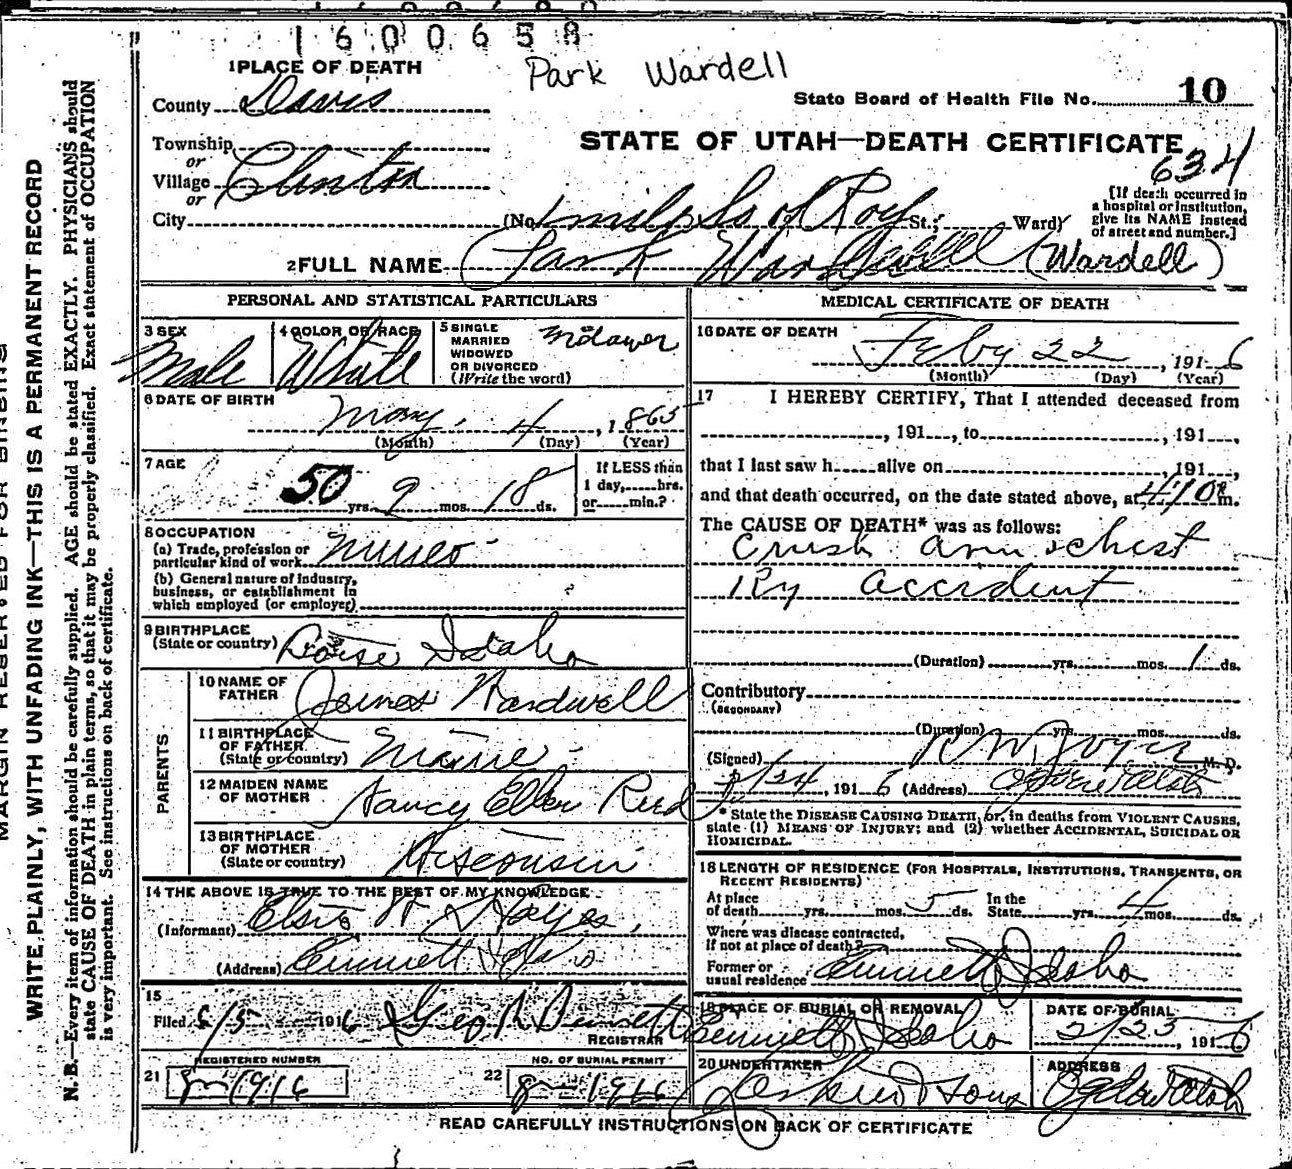 1600658
Park Wardell
1 PLACE OF DEATH
County Davis
State Board of Health File No. 10
Township
or
Village Clinton
or
City
STATE OF UTAH—DEATH CERTIFICATE
634
[If death occurred in
a hospital or institution,
give its NAME instead
of street and number.]
(No. 1 mile So of Roy St.; Ward)
2 FULL NAME (Park Wardwell (Wardell)
PERSONAL AND STATISTICAL PARTICULARS
3 SEX
Male
4 COLOR OR RACE
White
5 SINGLE
MARRIED
WIDOWED
OR DIVORCED
(Write the word)
6 DATE OF BIRTH
May 4, 1865
(Month) (Day) (Year)
7 AGE
50 yrs. 9 mos. 18 ds.
If LESS than
1 day, hrs.
or min.?
8 OCCUPATION
(a) Trade, profession or
particular kind of work
(b) General nature of Industry,
business, or establishment in
which employed (or employer)
9 BIRTHPLACE
(State or country) Boise Idaho
PARENTS
10 NAME OF
FATHER James Wardwell
11 BIRTHPLACE
OF FATHER
(State or country) Maine
12 MAIDEN NAME
OF MOTHER Nancy Ellen Reed
13 BIRTHPLACE
OF MOTHER
(State or country) Wisconsin
14 THE ABOVE IS TRUE TO THE BEST OF MY KNOWLEDGE
(Informant) Elsie W Hayes,
(Address) Emmett Idaho
15
Filed 1916 Geo.
REGISTRAR
REGISTERED NUMBER
21 8-1916
NO. OF BURIAL PERMIT
22 8-1916
MEDICAL CERTIFICATE OF DEATH
16 DATE OF DEATH
Feby 22, 1916
(Month) (Day) (Year)
17 I HEREBY CERTIFY, That I attended deceased from
, 191 , to , 191 ,
that I last saw h alive on , 191 ,
and that death occurred, on the date stated above, at m.
The CAUSE OF DEATH* was as follows:
Crush arm & chest
Ry accident
(Duration) yrs. mos. 1 ds.
Contributory
(SECONDARY)
(Duration) yrs. mos. ds.
(Signed) , M. D.
2/24, 1916 (Address) Ogden Utah
* State the DISEASE CAUSING DEATH, or, in deaths from VIOLENT CAUSES,
state (1) MEANS OF INJURY; and (2) whether ACCIDENTAL, SUICIDAL OR
HOMICIDAL.
18 LENGTH OF RESIDENCE (FOR HOSPITALS, INSTITUTIONS, TRANSIENTS, OR
RECENT RESIDENTS)
At place
of death yrs. mos. 5 ds. In the
State yrs. 4 mos. ds.
Where was disease contracted,
if not at place of death?
Former or
usual residence Emmett Idaho
19 PLACE OF BURIAL OR REMOVAL
Emmett Idaho
DATE OF BURIAL
2/25, 1916
20 UNDERTAKER
Larkin & Sons
ADDRESS
Ogden Utah
READ CAREFULLY INSTRUCTIONS ON BACK OF CERTIFICATE
MARGIN RESERVED FOR BINDING
WRITE PLAINLY, WITH UNFADING INK—THIS IS A PERMANENT RECORD
N. B.—Every item of information should be carefully supplied. AGE should be stated EXACTLY. PHYSICIANS should
state CAUSE OF DEATH in plain terms, so that it may be properly classified. Exact statement of OCCUPATION
is very important. See instructions on back of certificate.